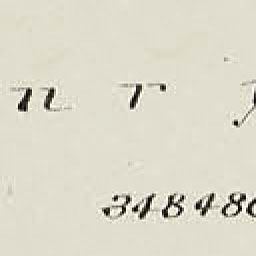 n r
34848